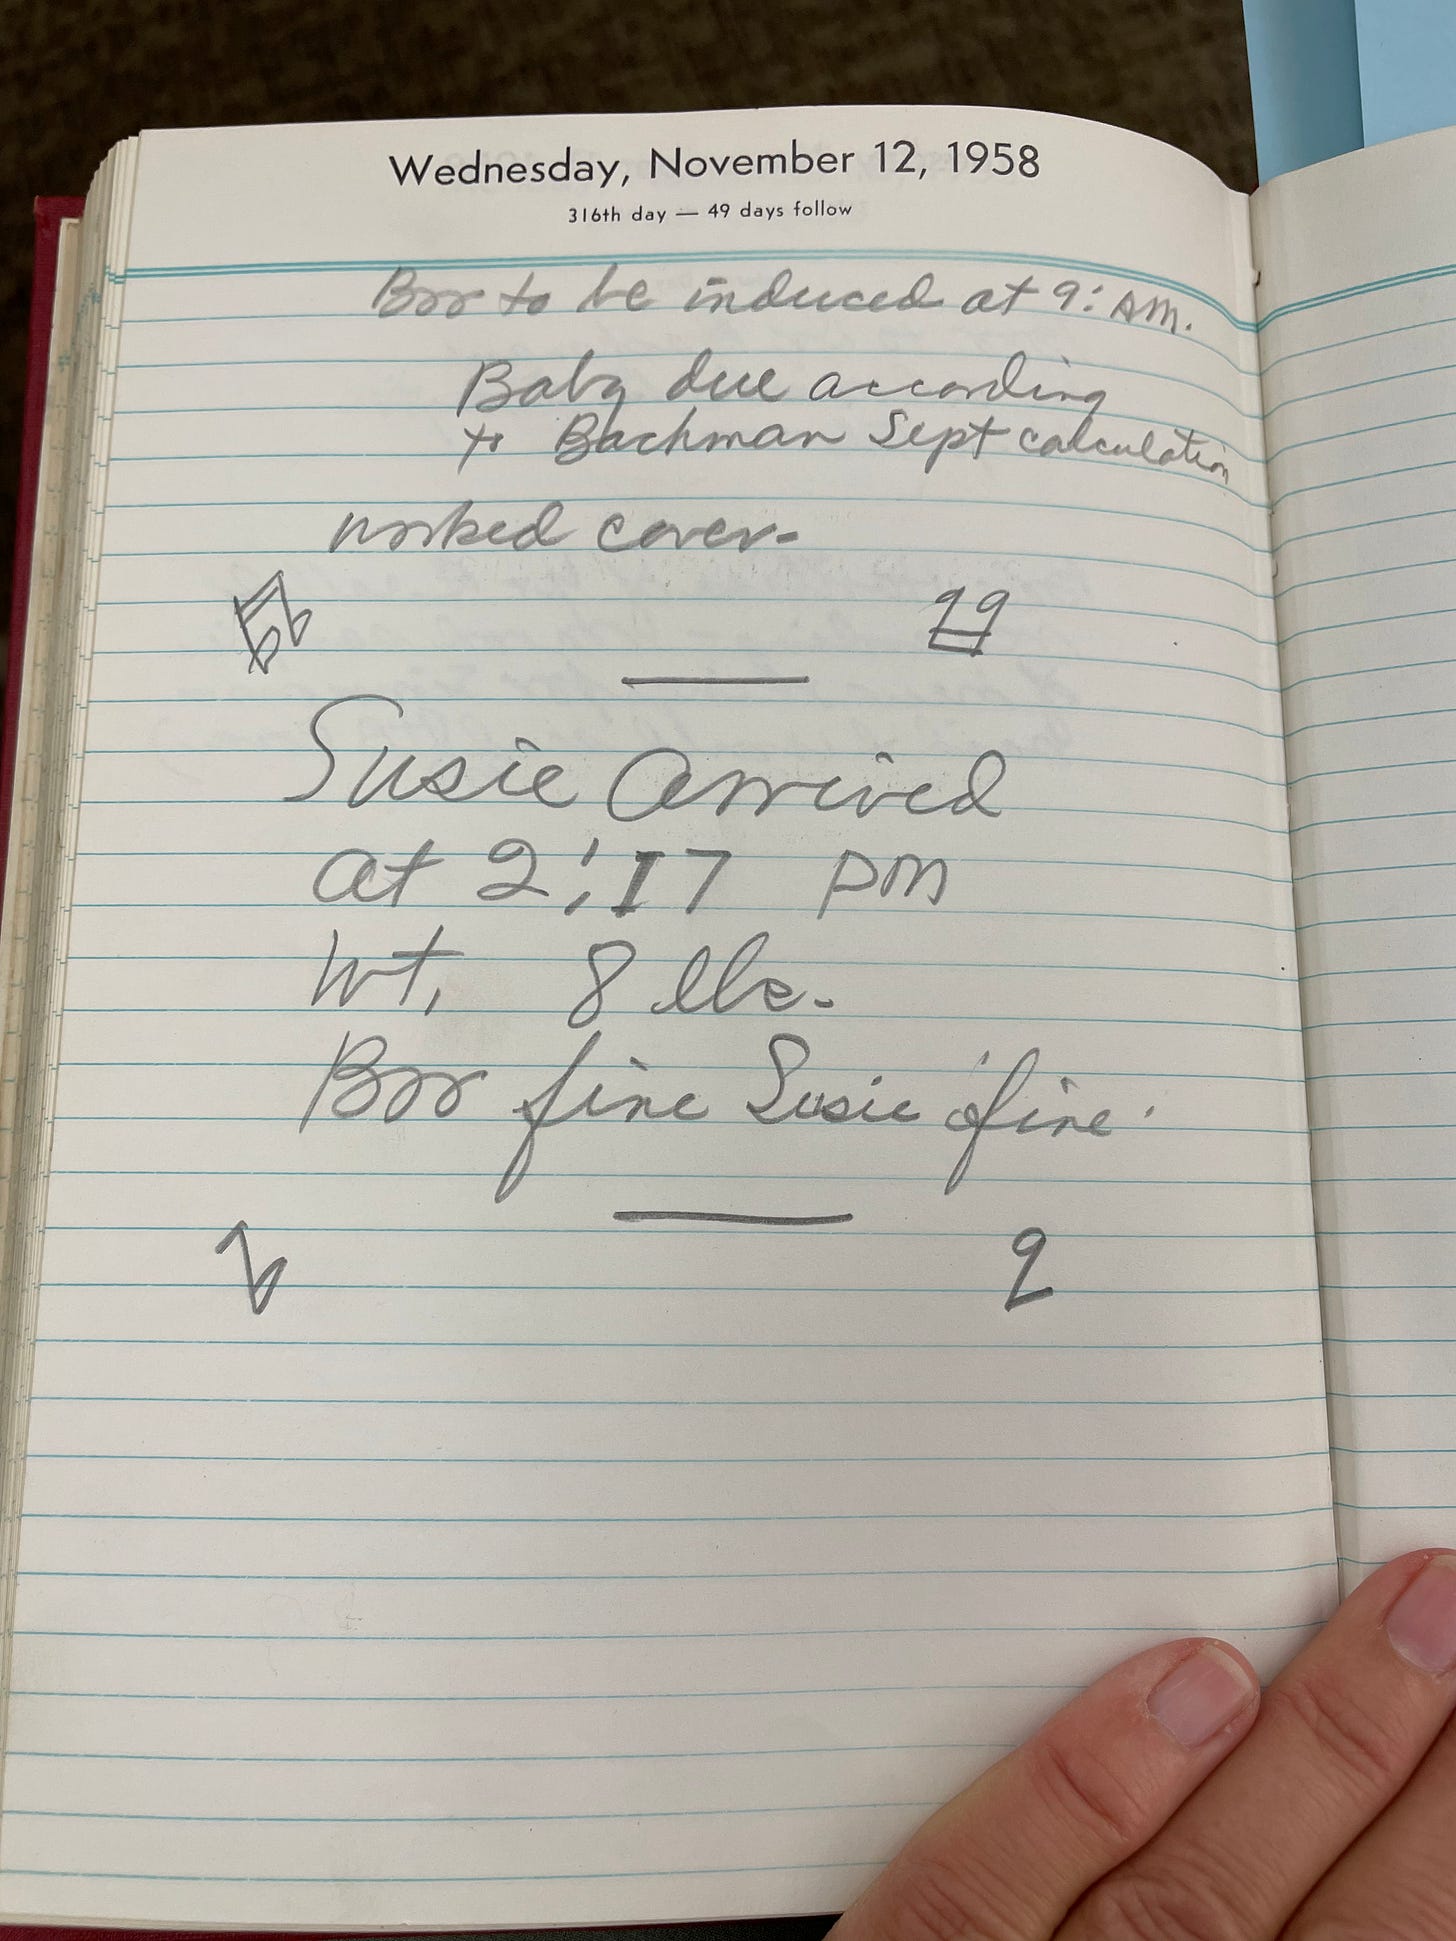 Wednesday, November 12, 1958
316th day — 49 days follow
Bor to be induced at 9: AM.
Baby due according
to Bachman Sept calculation
worked cover-
Susie Arrived
at 2:17 PM
Wt, 8 lbs.
Bor fine Susie fine.